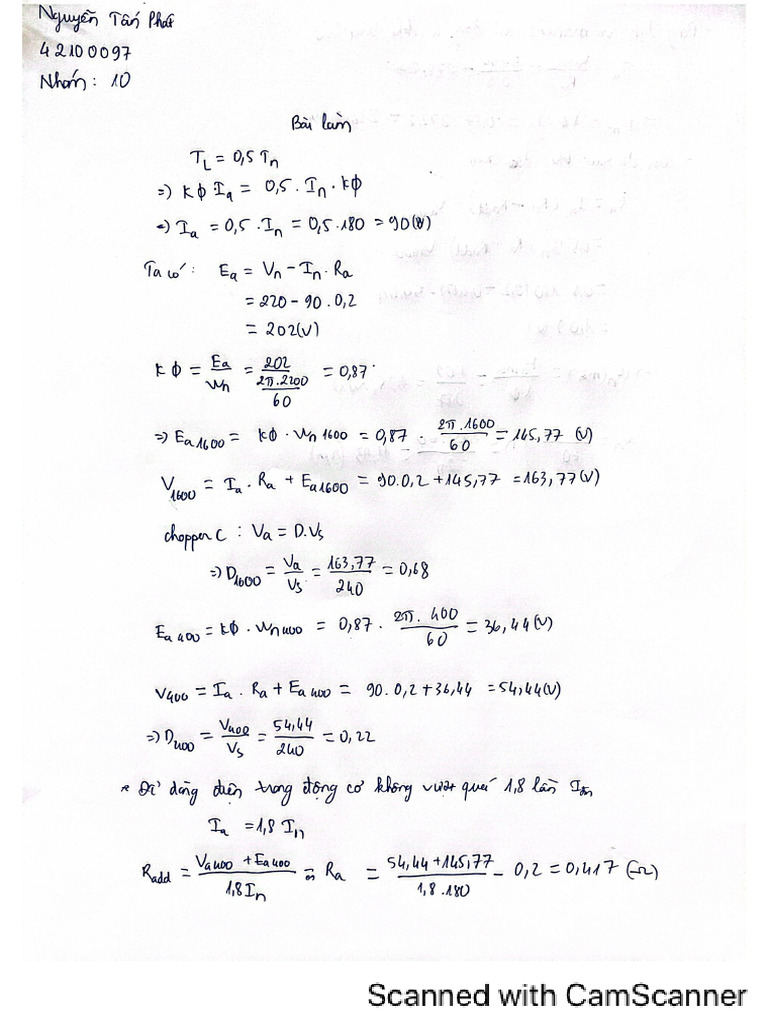 Nguyễn Tấn Phát
42100097
Nhóm: 10
Bài làm
T_L = 0,5 T_n
=> KΦ I_a = 0,5 . I_n . KΦ
<=> I_a = 0,5 . I_n = 0,5 . 180 = 90(V)
Ta có: E_a = V_n - I_n . R_a
= 220 - 90 . 0,2
= 202(V)
KΦ = E_a / ω_n = 202 / (2π.2200 / 60) = 0,87
=> E_a1600 = KΦ . ω_n1600 = 0,87 . 2π.1600 / 60 = 145,77 (V)
V_1600 = I_a . R_a + E_a1600 = 90.0,2 + 145,77 = 163,77(V)
chopper C : V_a = D.V_s
=> D_1600 = V_a / V_s = 163,77 / 240 = 0,68
E_a400 = KΦ . ω_n400 = 0,87 . 2π.400 / 60 = 36,44(V)
V_400 = I_a . R_a + E_a400 = 90.0,2 + 36,44 = 54,44(V)
=> D_400 = V_400 / V_s = 54,44 / 240 = 0,22
* Để dòng điện trong động cơ không vượt quá 1,8 lần I_đm
I_a = 1,8 I_n
R_add = (V_a400 + E_a400) / 1,8I_n - R_a = (54,44 + 145,77) / 1,8.180 - 0,2 = 0,417 (Ω)
Scanned with CamScanner